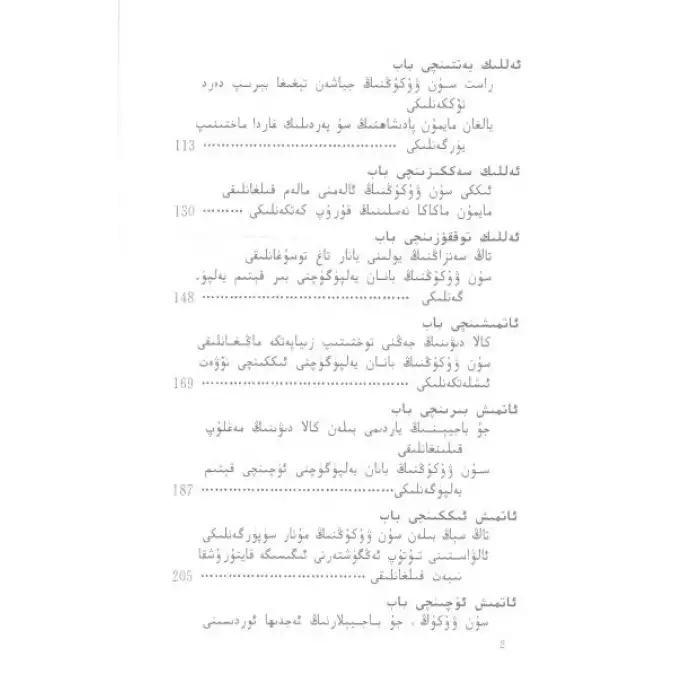 ئەللىك يەتتىنچى باب
راست سۇن ۋۇكۇڭنىڭ جياشەن تېغىغا بېرىپ دەرد
تۆككەنلىكى
يالغان مايمۇن پادىشاھنىڭ سۇ پەردىلىك غاردا ماختىنىپ
يۈرگەنلىكى ........................................ 113
ئەللىك سەككىزىنچى باب
ئىككى سۇن ۋۇكۇڭنىڭ ئالەمنى مالەم قىلغانلىقى
مايمۇن ماكاكا نەسلىنىڭ قۇرۇپ كەتكەنلىكى ......... 130
ئەللىك توققۇزىنچى باب
تاڭ سەنزاڭنىڭ يولىنى يانار تاغ توسۇغانلىقى
سۇن ۋۇكۇڭنىڭ بانان يەلپۈگۈچنى بىر قېتىم يەلپۈ-
گەنلىكى ........................................ 148
ئاتمىشىنچى باب
كالا دىۋىنىڭ جەڭنى توختىتىپ زىياپەتكە ماڭغانلىقى
سۇن ۋۇكۇڭنىڭ بانان يەلپۈگۈچنى ئىككىنچى نۆۋەت
ئىشلەتكەنلىكى ........................................ 169
ئاتمىش بىرىنچى باب
جۇ باجيېنىڭ ياردىمى بىلەن كالا دىۋىنىڭ مەغلۇپ
قىلىنغانلىقى
سۇن ۋۇكۇڭنىڭ بانان يەلپۈگۈچنى ئۈچىنچى قېتىم
يەلپۈگەنلىكى........................................ 187
ئاتمىش ئىككىنچى باب
تاڭ سېڭ بىلەن سۇن ۋۇكۇڭنىڭ مۇنار سۈپۈرگەنلىكى
ئالۋاستىنى تۇتۇپ ئەڭگۈشتەرنى ئىگىسىگە قايتۇرۇشقا
نىيەت قىلغانلىقى ........................................ 205
ئاتمىش ئۈچىنچى باب
سۇن ۋۇكۇڭ ، جۇ باجيېلارنىڭ ئەجدىھا ئوردىسىنى
2